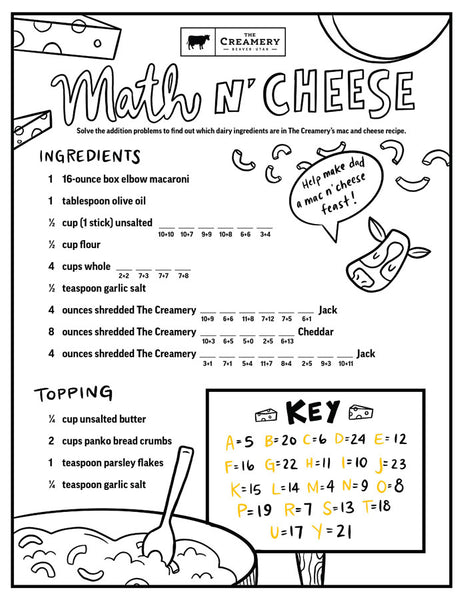 THE
CREAMERY
BEAVER · UTAH
Math N' CHEESE
Solve the addition problems to find out which dairy ingredients are in The Creamery's mac and cheese recipe.
INGREDIENTS
1 16-ounce box elbow macaroni
1 tablespoon olive oil
½ cup (1 stick) unsalted __ __ __ __ __ __
10+10 10+7 9+9 10+8 6+6 3+4
½ cup flour
4 cups whole __ __ __ __
2+2 7+3 7+7 7+8
½ teaspoon garlic salt
4 ounces shredded The Creamery __ __ __ __ __ __ Jack
10+9 6+6 11+8 7+12 7+5 6+1
8 ounces shredded The Creamery __ __ __ __ __ Cheddar
10+3 6+5 5+0 2+5 6+13
4 ounces shredded The Creamery __ __ __ __ __ __ __ __ Jack
3+1 7+1 5+4 11+7 8+4 2+5 9+3 10+11
Help make dad
a mac n' cheese
feast!
TOPPING
¼ cup unsalted butter
2 cups panko bread crumbs
1 teaspoon parsley flakes
¼ teaspoon garlic salt
KEY
A=5 B=20 C=6 D=24 E=12
F=16 G=22 H=11 I=10 J=23
K=15 L=14 M=4 N=9 O=8
P=19 R=7 S=13 T=18
U=17 Y=21